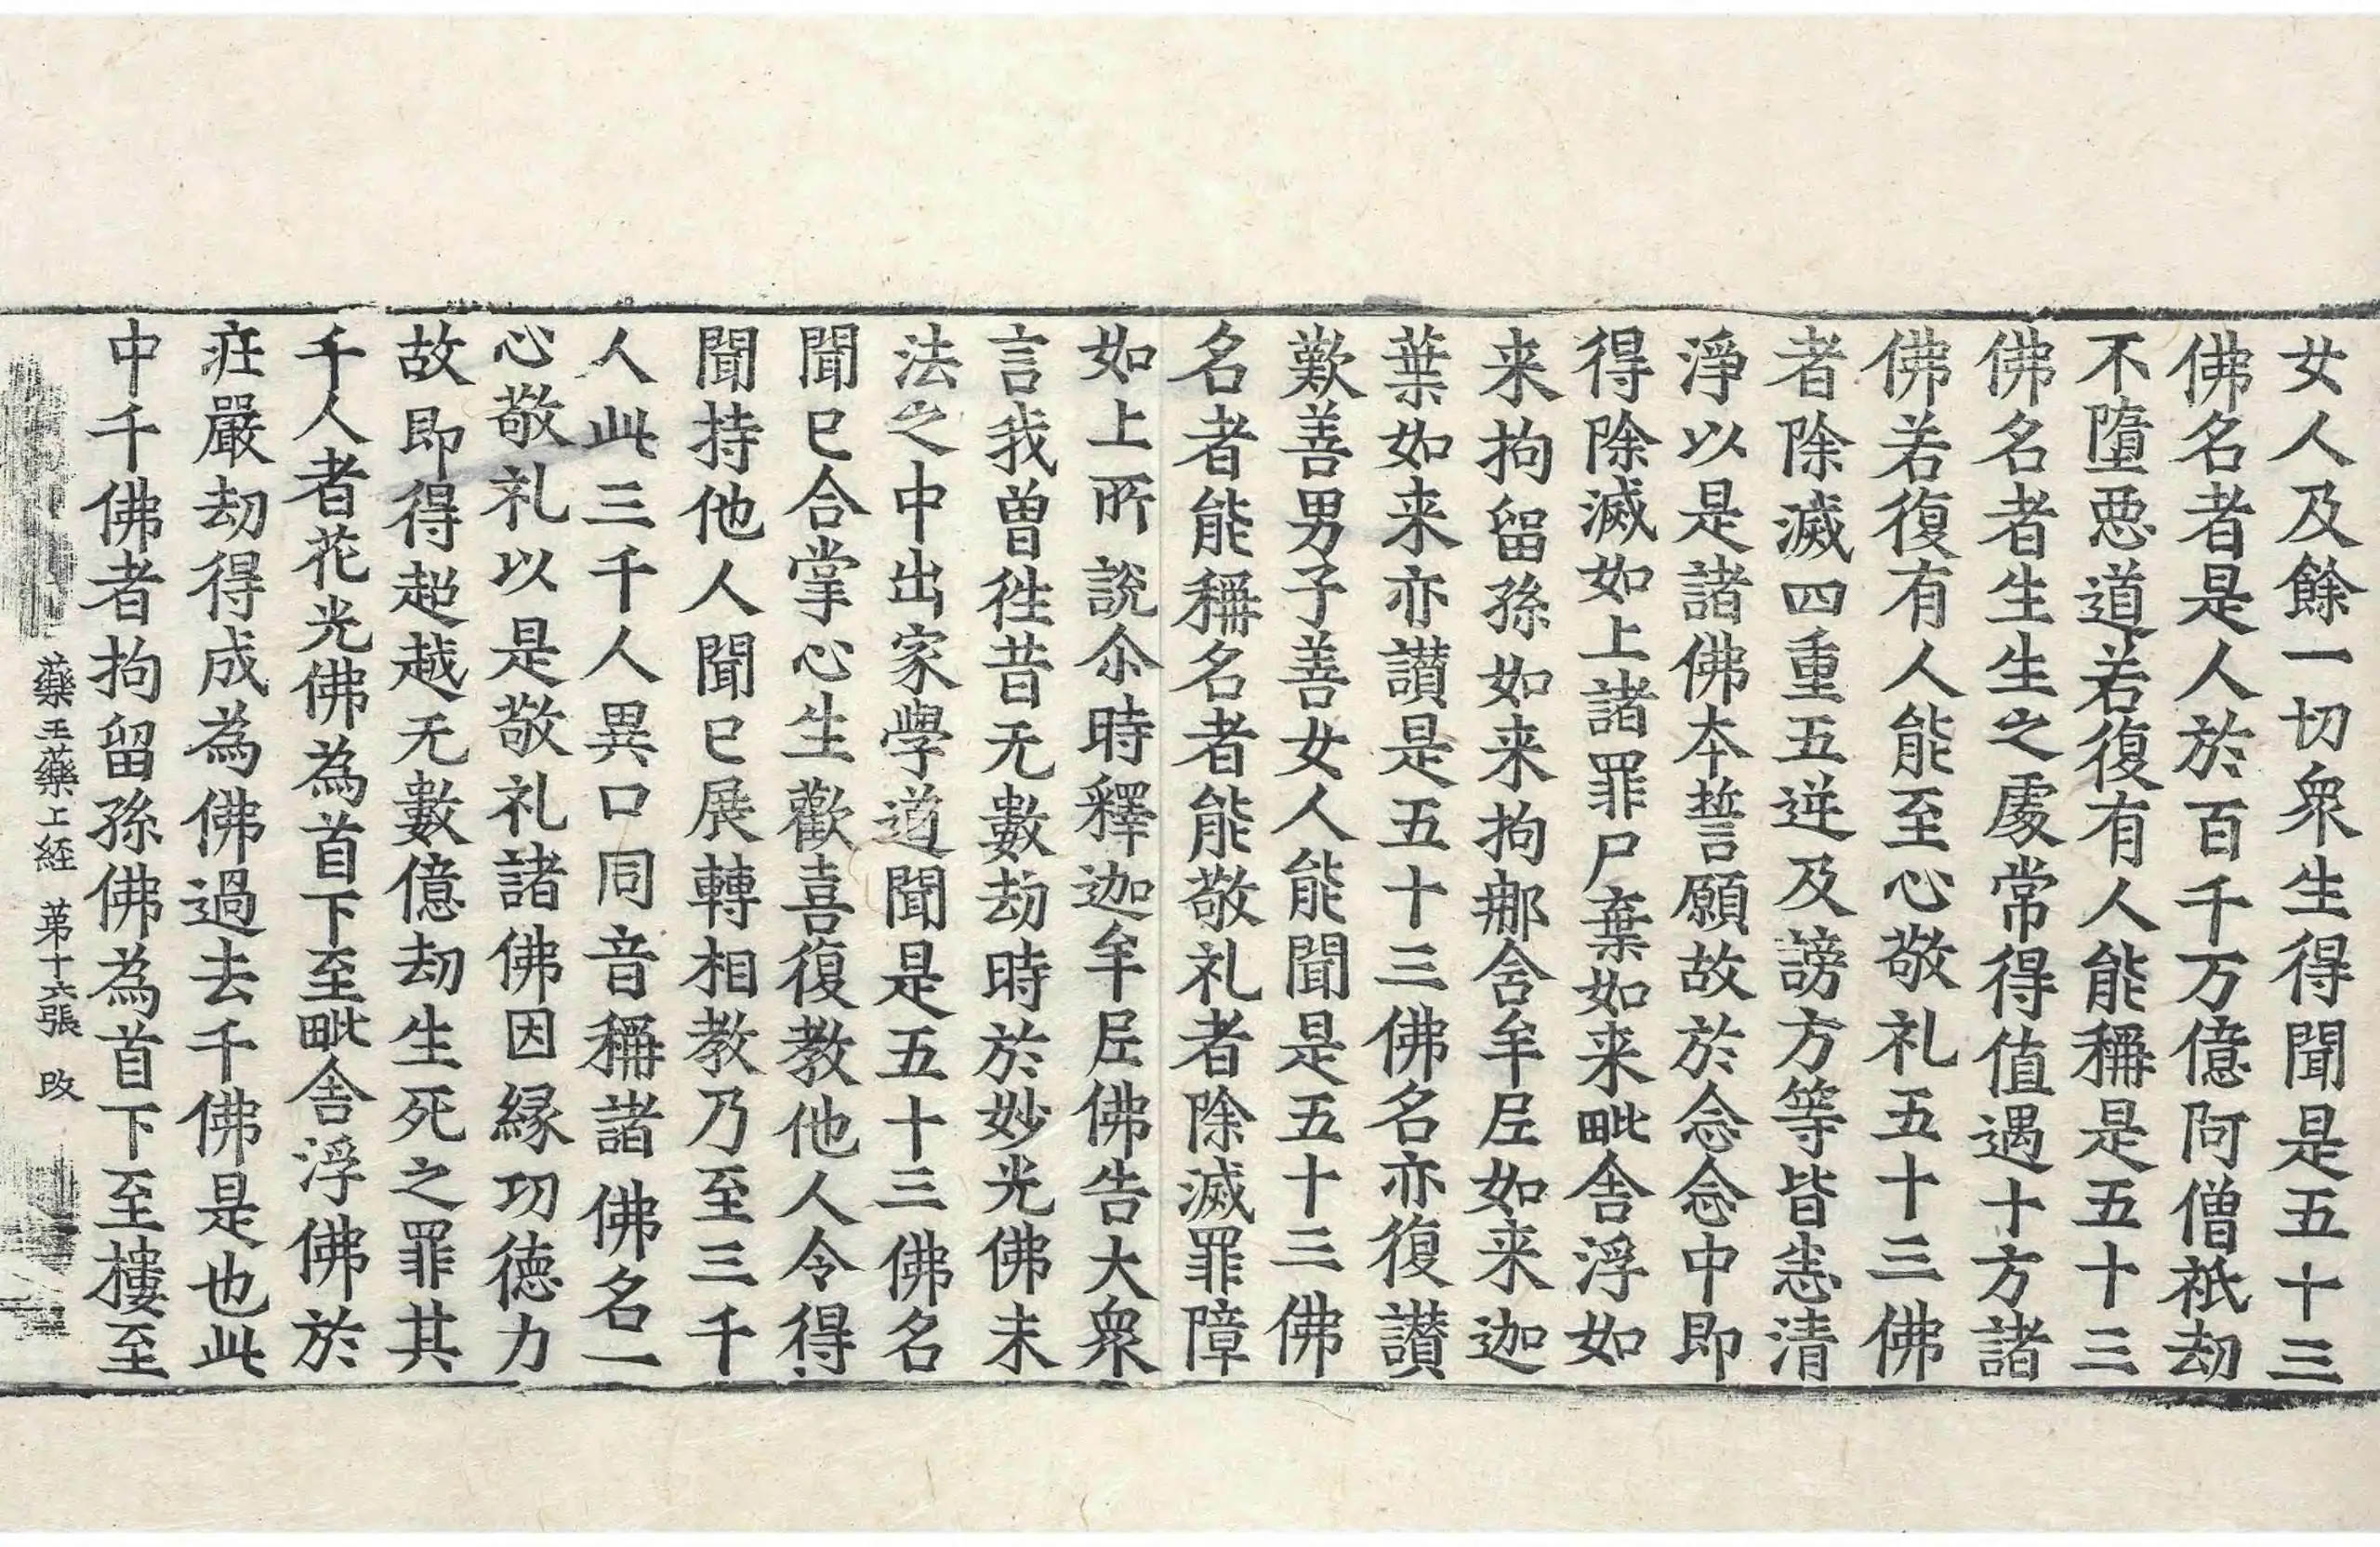 女人及餘一切衆生得聞是五十三
佛名者是人於百千万億阿僧祇劫
不墮惡道若復有人能稱是五十三
佛名者生生之處常得值遇十方諸
佛若復有人能至心敬礼五十三佛
者除滅四重五逆及謗方等皆悉清
淨以是諸佛本誓願故於念念中即
得除滅如上諸罪尸棄如来毗舍浮如
来拘留孫如来拘那舍牟尼如来迦
葉如来亦讃是五十三佛名亦復讃
歎善男子善女人能聞是五十三佛
名者能稱名者能敬礼者除滅罪障
如上所說尒時釋迦牟尼佛告大衆
言我曽徃昔无數劫時於妙光佛末
法之中出家學道聞是五十三佛名
聞已合掌心生歡喜復教他人令得
聞持他人聞已展轉相教乃至三千
人此三千人異口同音稱諸佛名一
心敬礼以是敬礼諸佛因縁功徳力
故即得超越无數億劫生死之罪其
千人者花光佛為首下至毗舍浮佛於
莊嚴劫得成為佛過去千佛是也此
中千佛者拘留孫佛為首下至樓至
藥王藥上経 苐十六張 改